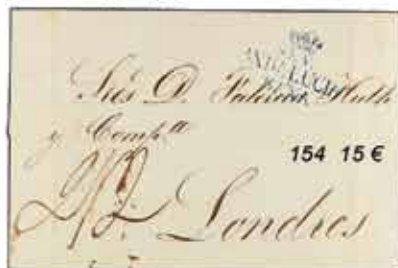 Sres D. Federico Huth
y Comp.ª
154 15 €
Londres